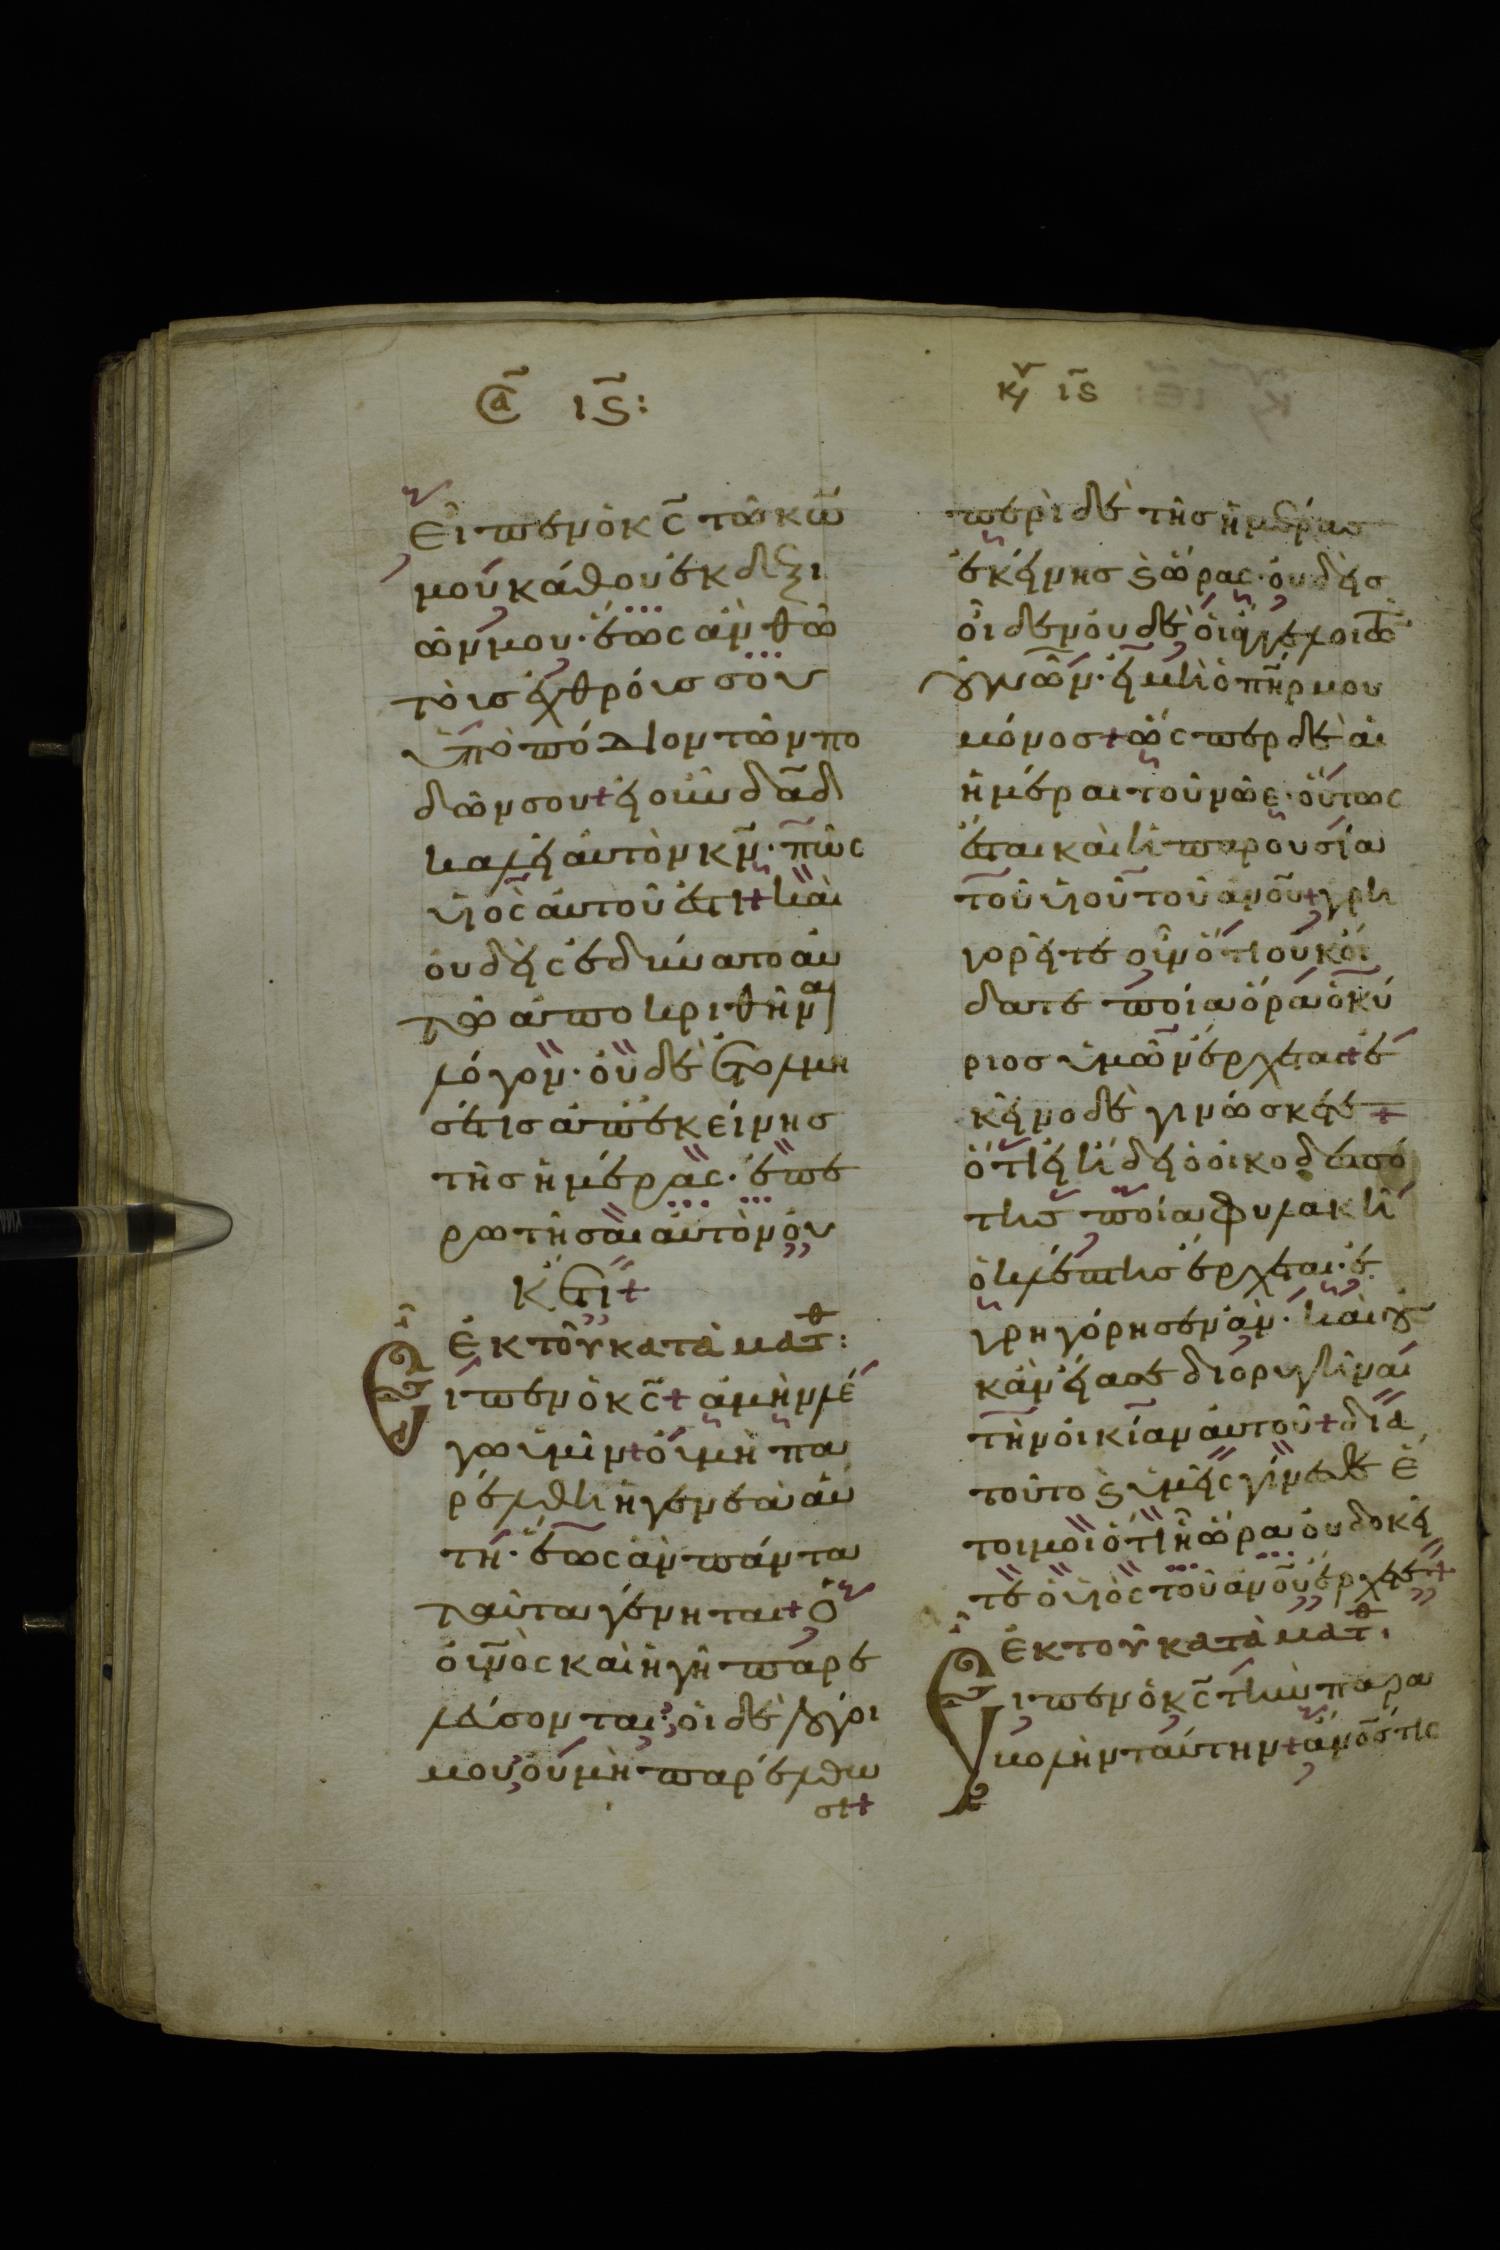 σα ιϛ:
κυ ιϛ
Εἶπεν ὁ κς τῶ κω
μου κάθου ἐκ δεξι
ῶν μου· ἕως ἂν θῶ
τοὺς ἐχθρούς σου
ὑποπόδιον τῶν πο
δῶν σου + εἰ οὖν δαδ
καλεῖ αὐτὸν κν· πῶς
υἱὸς αὐτοῦ ἐστι + καὶ
οὐδεὶς ἐδύνατο αὐ
τῶ ἀποκριθῆναι
λόγον· οὐδὲ ἐτόλμη
σέ τις ἀπ' ἐκείνης
τῆς ἡμέρας· ἐπε
ρωτῆσαι αὐτὸν οὐ
κέτι +
ἐκ τοῦ κατὰ ματθ:
Εἶπεν ὁ κς + ἀμὴν λέ
γω ὑμῖν + οὐ μὴ πα
ρέλθη ἡ γενεὰ αὕ
τη· ἕως ἂν πάντα
ταῦτα γένηται + ὁ
οὐνος καὶ ἡ γῆ παρε
λεύσονται· οἱ δὲ λόγοι
μου οὐ μὴ παρέλθω
σι +
περὶ δὲ τῆς ἡμέρας
ἐκείνης ϗ ὥρας· οὐδεὶς
οἶδεν οὐδὲ οἱ ἄγγελοι τῶν
οὐνῶν· εἰ μὴ ὁ πηρ μου
μόνος + ὥσπερ δὲ αἱ
ἡμέραι τοῦ νῶε· οὕτως
ἔσται καὶ ἡ παρουσία
τοῦ υἱοῦ τοῦ ανου + γρη
γορεῖτε οὖν ὅτι οὐκ οἴ
δατε ποία ὥρα ὁ κύ
ριος ὑμῶν ἔρχεται + ἐ
κεῖνο δὲ γινώσκετε +
ὅτι εἰ ἤδει ὁ οἰκοδεσπό
της ποία φυλακῆ
ὁ κλέπτης ἔρχεται· ἐ
γρηγόρησεν ἄν· καὶ οὐ
κ ἂν εἴασε διορυγῆναι
τὴν οἰκίαν αὐτοῦ + διὰ
τοῦτο ϗ ὑμεῖς γίνεσθε ἕ
τοιμοι ὅτι ἧ ὥρα οὐ δοκεῖ
τε ὁ υἱὸς τοῦ ανου ἔρχεται +
ἐκ τοῦ κατὰ ματθ:
Εἶπεν ὁ κς τὴν παρα
βολὴν ταύτην + ἄνος τις